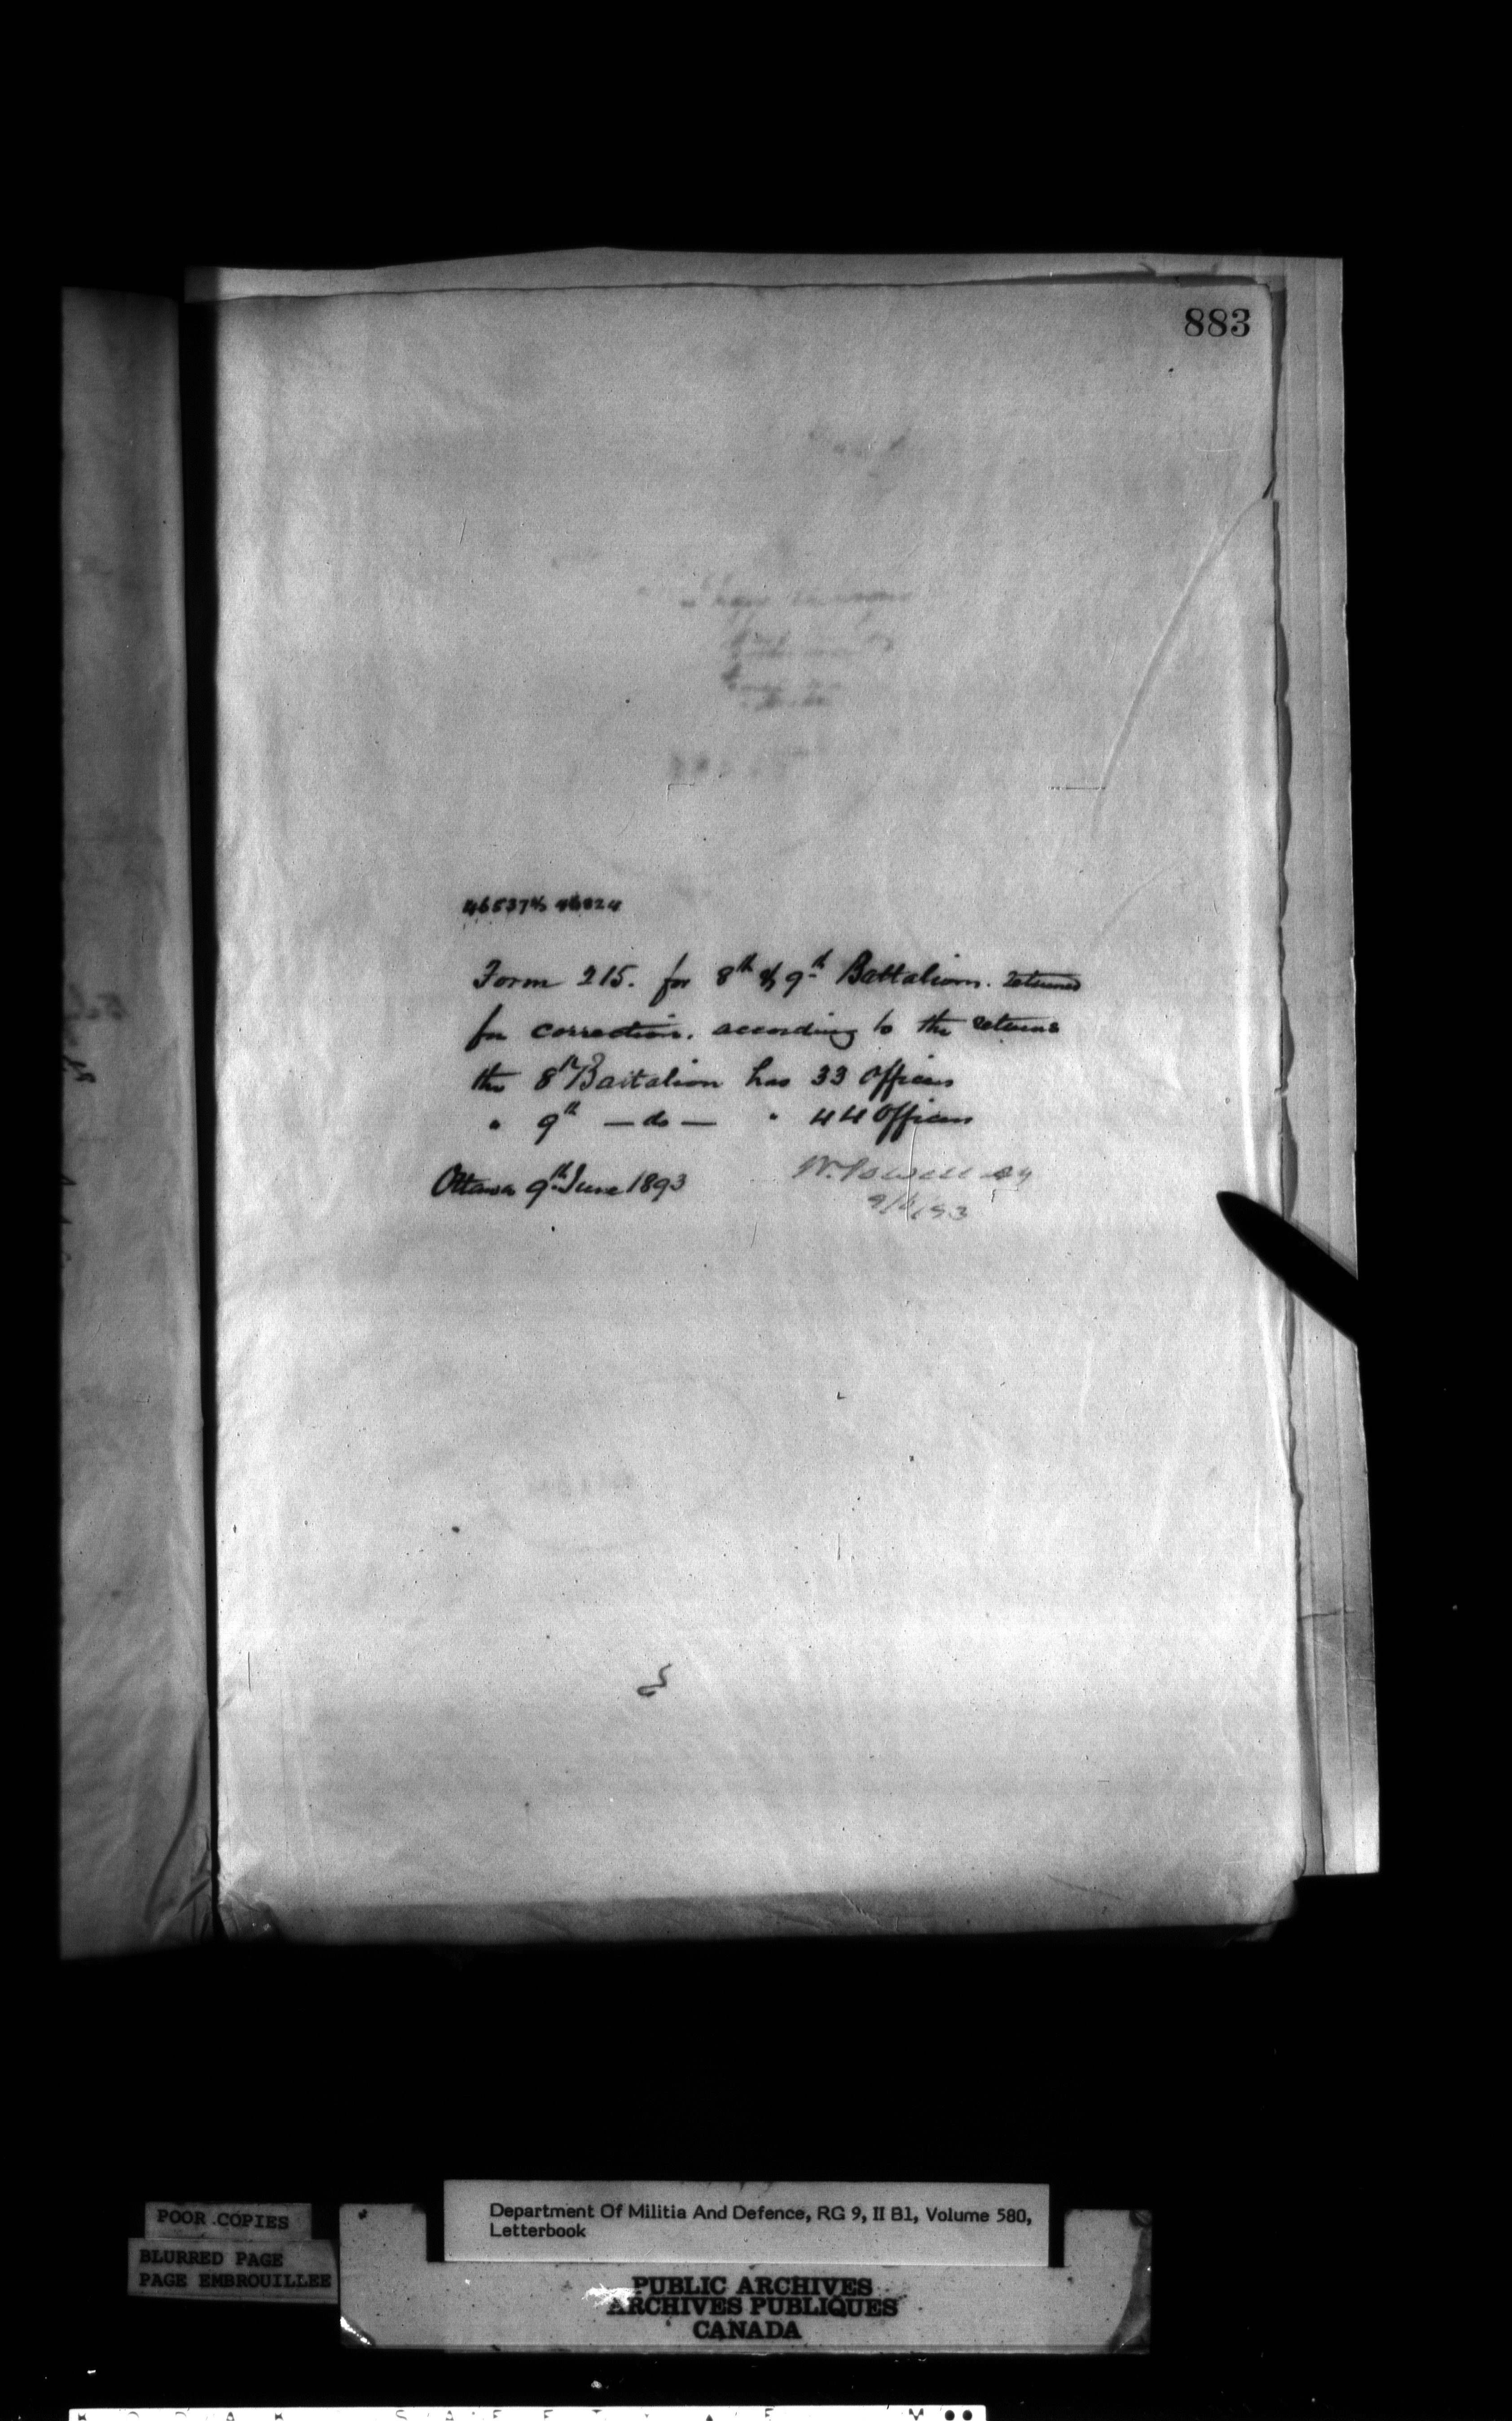 883
Form 215. for 8th & 9th Battalions. returned
for correction. according to the returns
the 8th Battalion has 33 Officers
" 9th — do — " 44 Officers
Ottawa 9th June 1893
W. Powell AG
9/6/93
POOR COPIES
BLURRED PAGE
PAGE EMBROUILLEE
Department Of Militia And Defence, RG 9, II B1, Volume 580,
Letterbook
PUBLIC ARCHIVES
ARCHIVES PUBLIQUES
CANADA